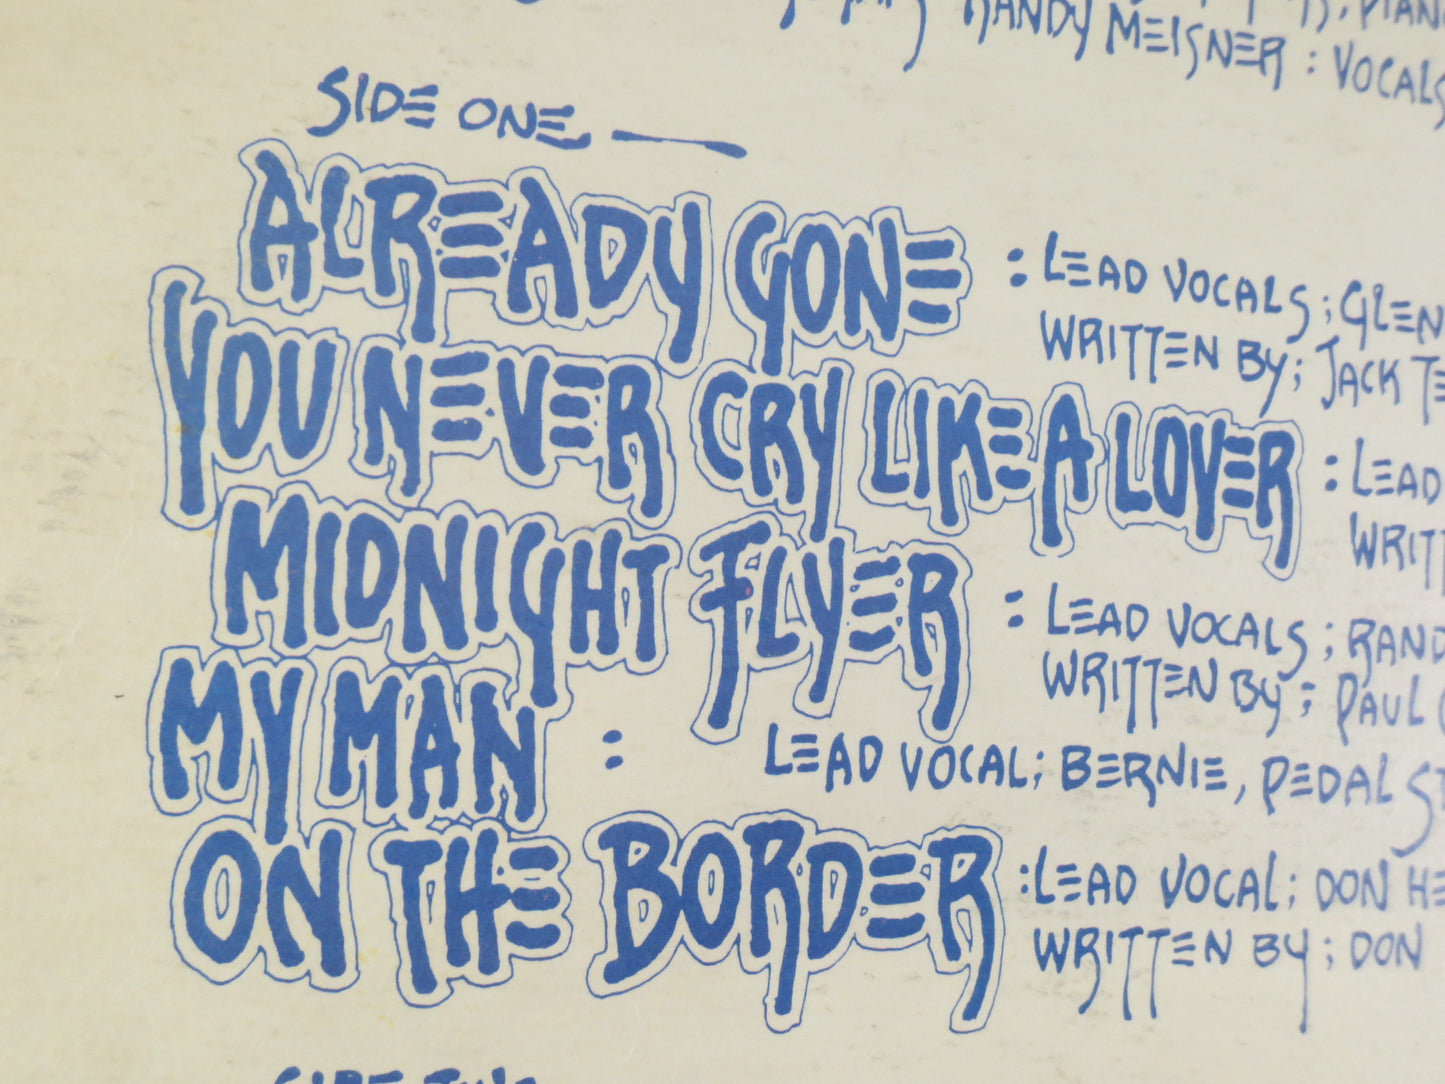 RANDY MEISNER : VOCALS
SIDE ONE
ALREADY GONE : LEAD VOCALS ; GLEN
WRITTEN BY ; JACK TE
YOU NEVER CRY LIKE A LOVER : LEAD
WRIT
MIDNIGHT FLYER : LEAD VOCALS ; RAND
WRITTEN BY ; PAUL
MY MAN : LEAD VOCAL ; BERNIE, PEDAL ST
ON THE BORDER : LEAD VOCAL ; DON HE
WRITTEN BY ; DON